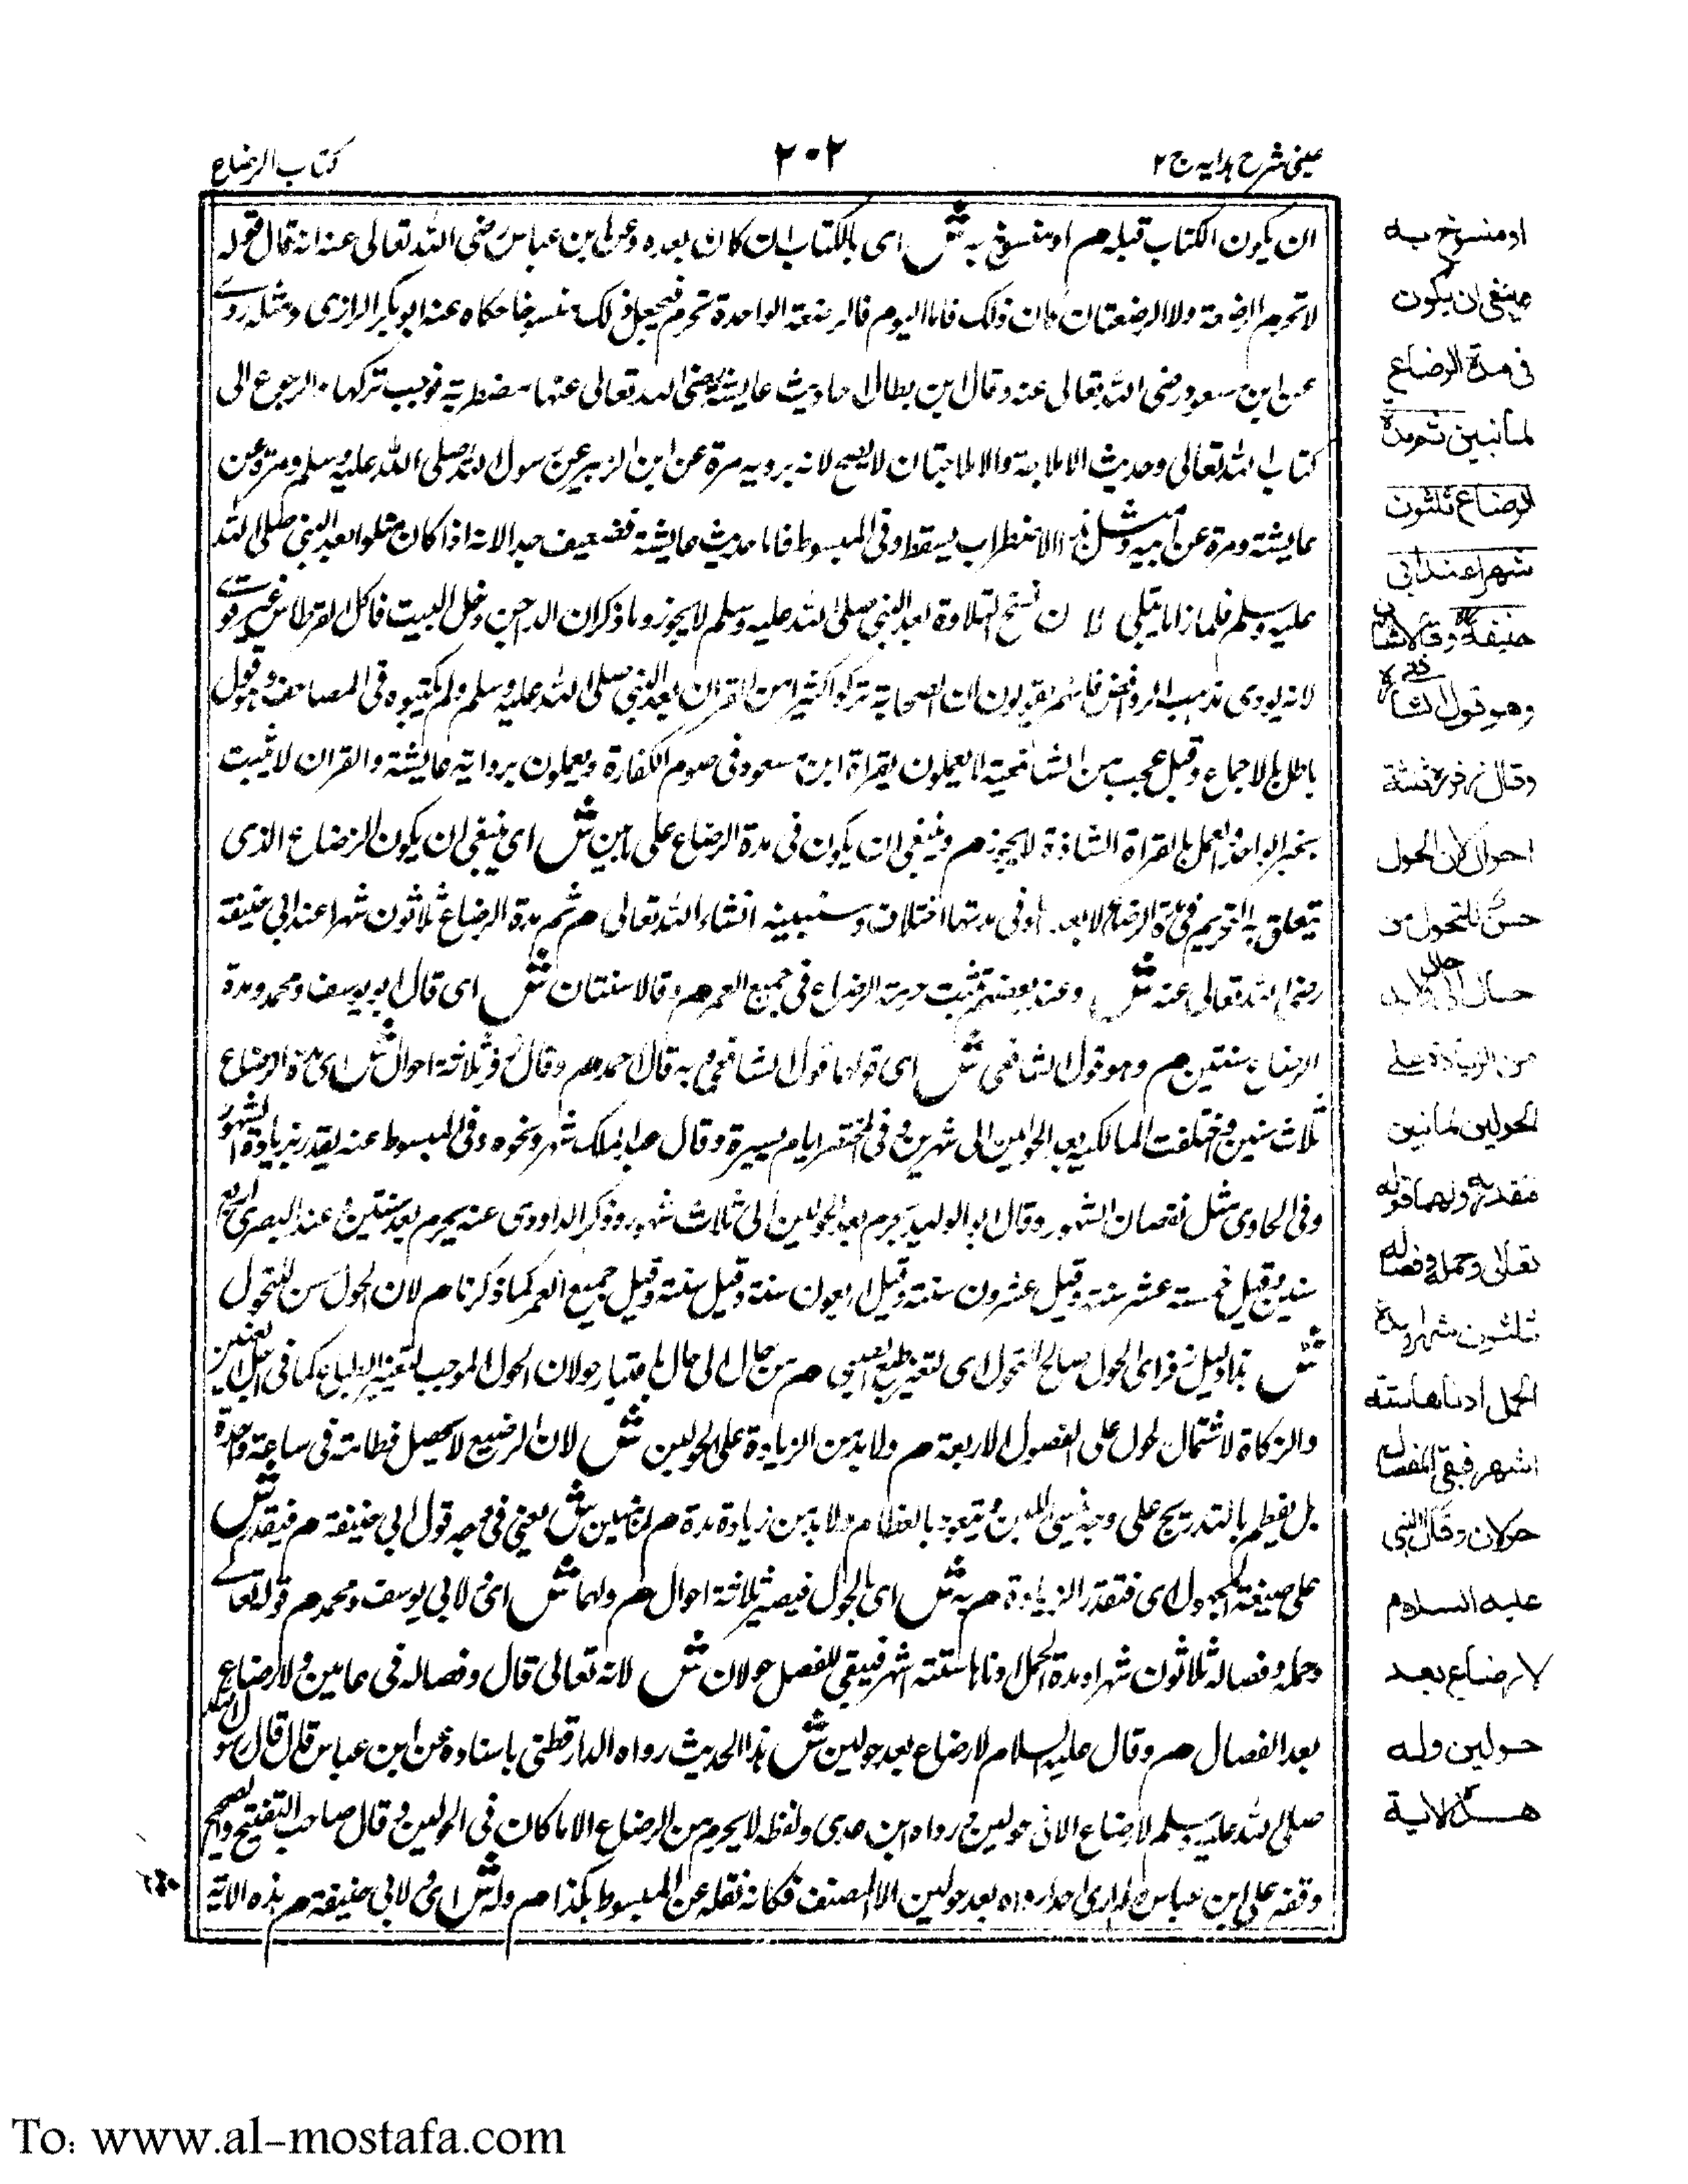 عينى شرح هدايه ج ٢
٢٠٢
كتاب الرضاع
ان يكون الكتاب قبله م او منسوخ به ش اى بالكتاب ان كان بعده وعن ابن عباس رضى الله تعالى عنه انه قال قوله
لا تحرم الرضعة ولا الرضعتان كان ذلك فاما اليوم فالرضعة الواحدة تحرم فيجعل ذلك منسوخا حكاه عنه ابو بكر الرازى ومثله روى
عن ابن مسعود رضى الله تعالى عنه وقال ابن بطال احاديث عايشة رضى الله تعالى عنها مضطربة فوجب تركها والرجوع الى
كتاب الله تعالى وحديث الاملاجة والاملاجتان لا يصح لانه يرويه مرة عن ابن الزبير عن رسول الله صلى الله عليه وسلم ومرة عن
عايشة ومرة عن ابيه ومثل هذا الاضطراب يسقط وفى المبسوط فاما حديث عايشة فضعيف جدا لانه اذا كان متلوا بعد النبى صلى الله
عليه وسلم فلماذا لا يتلى لا ن نسخ التلاوة بعد النبى صلى الله عليه وسلم لا يجوز وما ذكر ان الداجن دخل البيت فاكل القرطاس غير قوى
لانه يودى مذهب الروافض فانهم يقولون ان الصحابة تركوا كثيرا من القران بعد النبى صلى الله عليه وسلم ولم يكتبوه فى المصاحف وهو قول
باطل بالاجماع وقيل عجب من الشافعية لا يعملون بقراة ابن مسعود فى صوم الكفارة ويعملون برواية عايشة والقران لا يثبت
بخبر الواحد والعمل بالقراة الشاذة لا يجوز م وينبغى ان يكون فى مدة الرضاع على ما بين ش اى ينبغى ان يكون الرضاع الذى
يتعلق به التحريم فى مدة الرضاع لا بعدها وفى مدتها اختلاف وسنبينه انشاء الله تعالى م ثم مدة الرضاع ثلاثون شهرا عند ابى حنيفة
رضى الله تعالى عنه ش وعند بعضهم تثبت حرمة الرضاع فى جميع العمر م وقالا سنتان ش اى قال ابو يوسف ومحمد مدة
الرضاع سنتين م وهو قول الشافعى ش اى قولهما قول الشافعى وبه قال احمد م وقال زفر ثلاثة احوال ش اى مدة الرضاع
ثلاث سنين واختلفت المالكية بعد الحولين الى شهرين وفى المختصر ايام يسيرة وقال عبد الملك شهر ونحوه وفى المبسوط عنه يقدر بزيادة الشهور
وفى الحاوى مثل نقصان الشهور وقال ابو الوليد يحرم بعد الحولين الى ثلاث شهور وذكر الداودى عنه يحرم بعد سنتين وعند البصرى اربع
سنين وقيل خمسة عشر سنة وقيل عشرون سنة وقيل اربعون سنة وقيل سنة وقيل جميع العمر كما ذكرنا م لان الحول حسن للتحول
ش هذا دليل زفر اى الحول صالح للتحول اى لتغير طبع الصبى م من حال الى حال باعتبار حولان الحول الموجب لتغير الطباع كما فى اجل العنين
والزكاة لاشتمال الحول على الفصول الاربعة م ولا بد من الزيادة على الحولين ش لان الرضيع لا يحصل فطامه فى ساعة واحدة
بل يفطم بالتدريج على وجه ينسى اللبن ويتعود بالطعام ولا بد من زيادة مدة م لما نبين ش يعنى فى وجه قول ابى حنيفة م فيقدر ش
على صيغة المجهول اى فتقدر الزيادة م به ش اى بالحول فيصير ثلاثة احوال م ولهما ش اى لابى يوسف ومحمد م قوله تعالى
وحمله وفصاله ثلاثون شهرا ومدة الحمل ادناها ستة اشهر فيبقى للفصل حولان ش لانه تعالى قال وفصاله فى عامين ولا رضاع
بعد الفصال م وقال عليه السلام لا رضاع بعد حولين ش هذا الحديث رواه الدارقطنى باسناده عن ابن عباس قال قال رسول الله
صلى الله عليه وسلم لا رضاع الا فى حولين ورواه ابن عدى ولفظه لا يحرم من الرضاع الا ما كان فى الحولين وقال صاحب التنقيح والصحيح
وقفه على ابن عباس ولم ار احدا رواه بعد حولين الا المصنف فكانه نقله عن المبسوط هكذا م وله ش اى لابى حنيفة م هذه الاية
او منسوخ به
وينبغى ان يكون
فى مدة الرضاع
لما نبين ثم مدة
الرضاع ثلثون
شهرا عند ابى
حنيفة وقالا سنتان
وهو قول الشافعى
وقال زفر ثلثة
احوال لان الحول
حسن للتحول من
حال الى حال ولابد
من الزيادة على
الحولين لما نبين
فيقدر به ولهما قوله
تعالى وحمله وفصاله
ثلثون شهرا ومدة
الحمل ادناها ستة
اشهر فبقى للفصال
حولان وقال النبى
عليه السلام
لا رضاع بعد
حولين وله
هذه الاية
To: www.al-mostafa.com